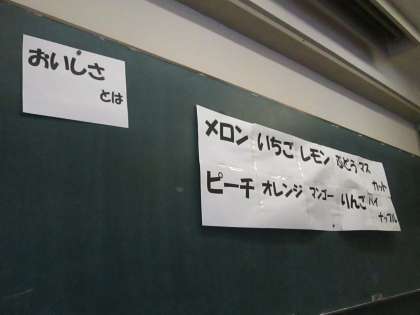 おいしさ
とは
メロン いちご レモン ぶどう マス
カット
ピーチ オレンジ マンゴー りんご パイ
ナップル